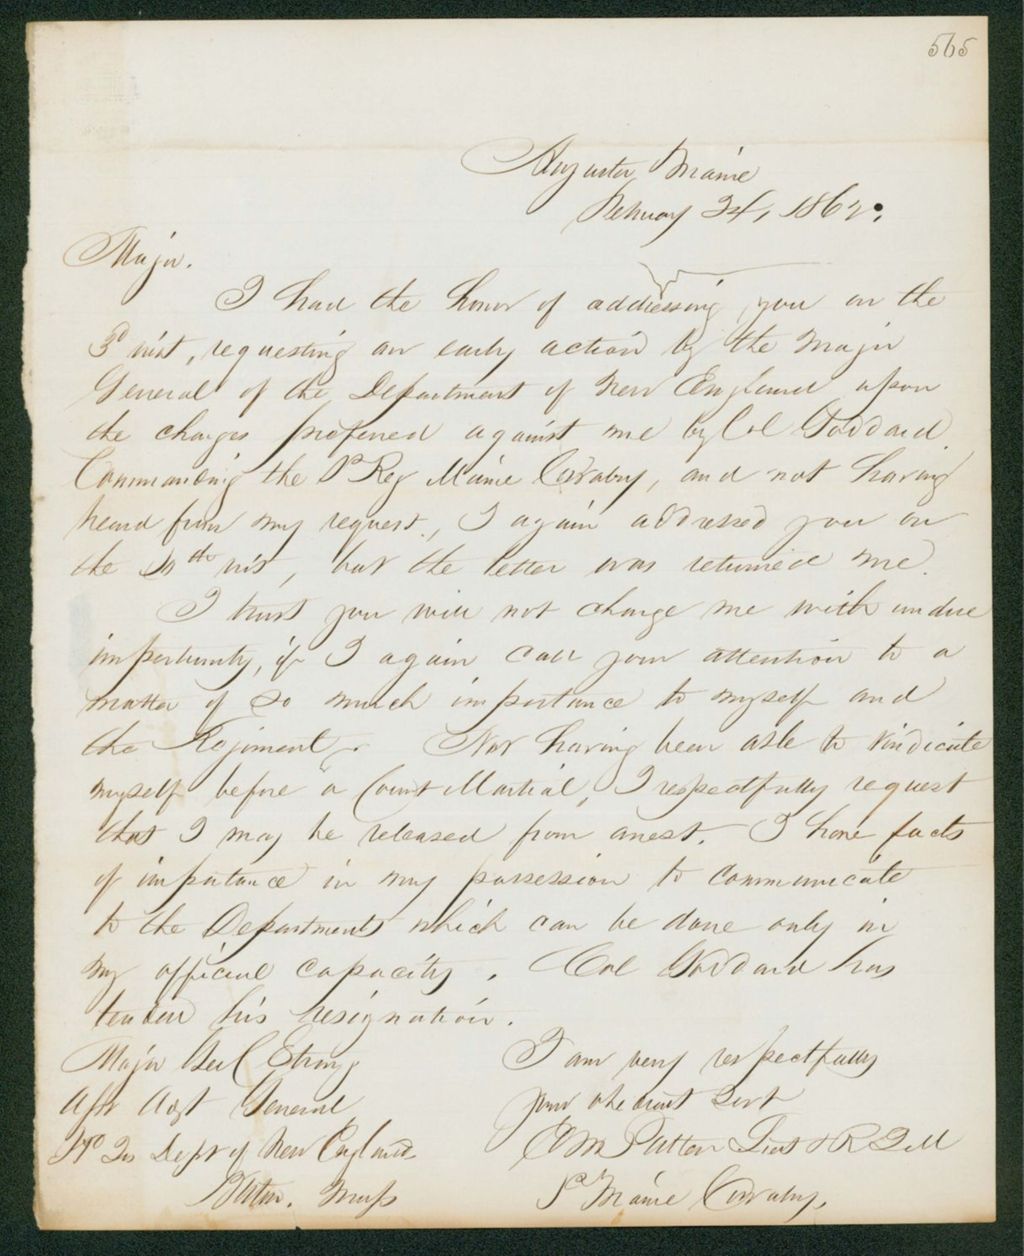 565
Augusta Maine
Febuary 24, 1862.
Major.
I had the honor of addressing, you on the
3d inst, requesting an early action by the Major
General of the Department of New England upon
the charges prefered against me by Col Goddard
Commanding the 1st Reg Maine Cavalry, and not having
heard from my request, I again addressed you on
the th inst, but the letter was returned me.
I trust you will not charge me with undue
importunity, if I again call your attention to a
matter of so much importance to myself and
the Regiment. Not having been able to vindicate
myself before a Court Martial, I respectfully request
that I may be released from arrest. I have facts
of importance in my possession to communicate
to the Department which can be done only in
my official capacity. Col Goddard has
his resignation.
Major Geo C Strong
Asst Adgt General
Hd Qrs Dept of New England
Boston. Mass
I am very respectfully
your obedient Servt
E M Patten Lieut & R Q M
1st Maine Cavalry.